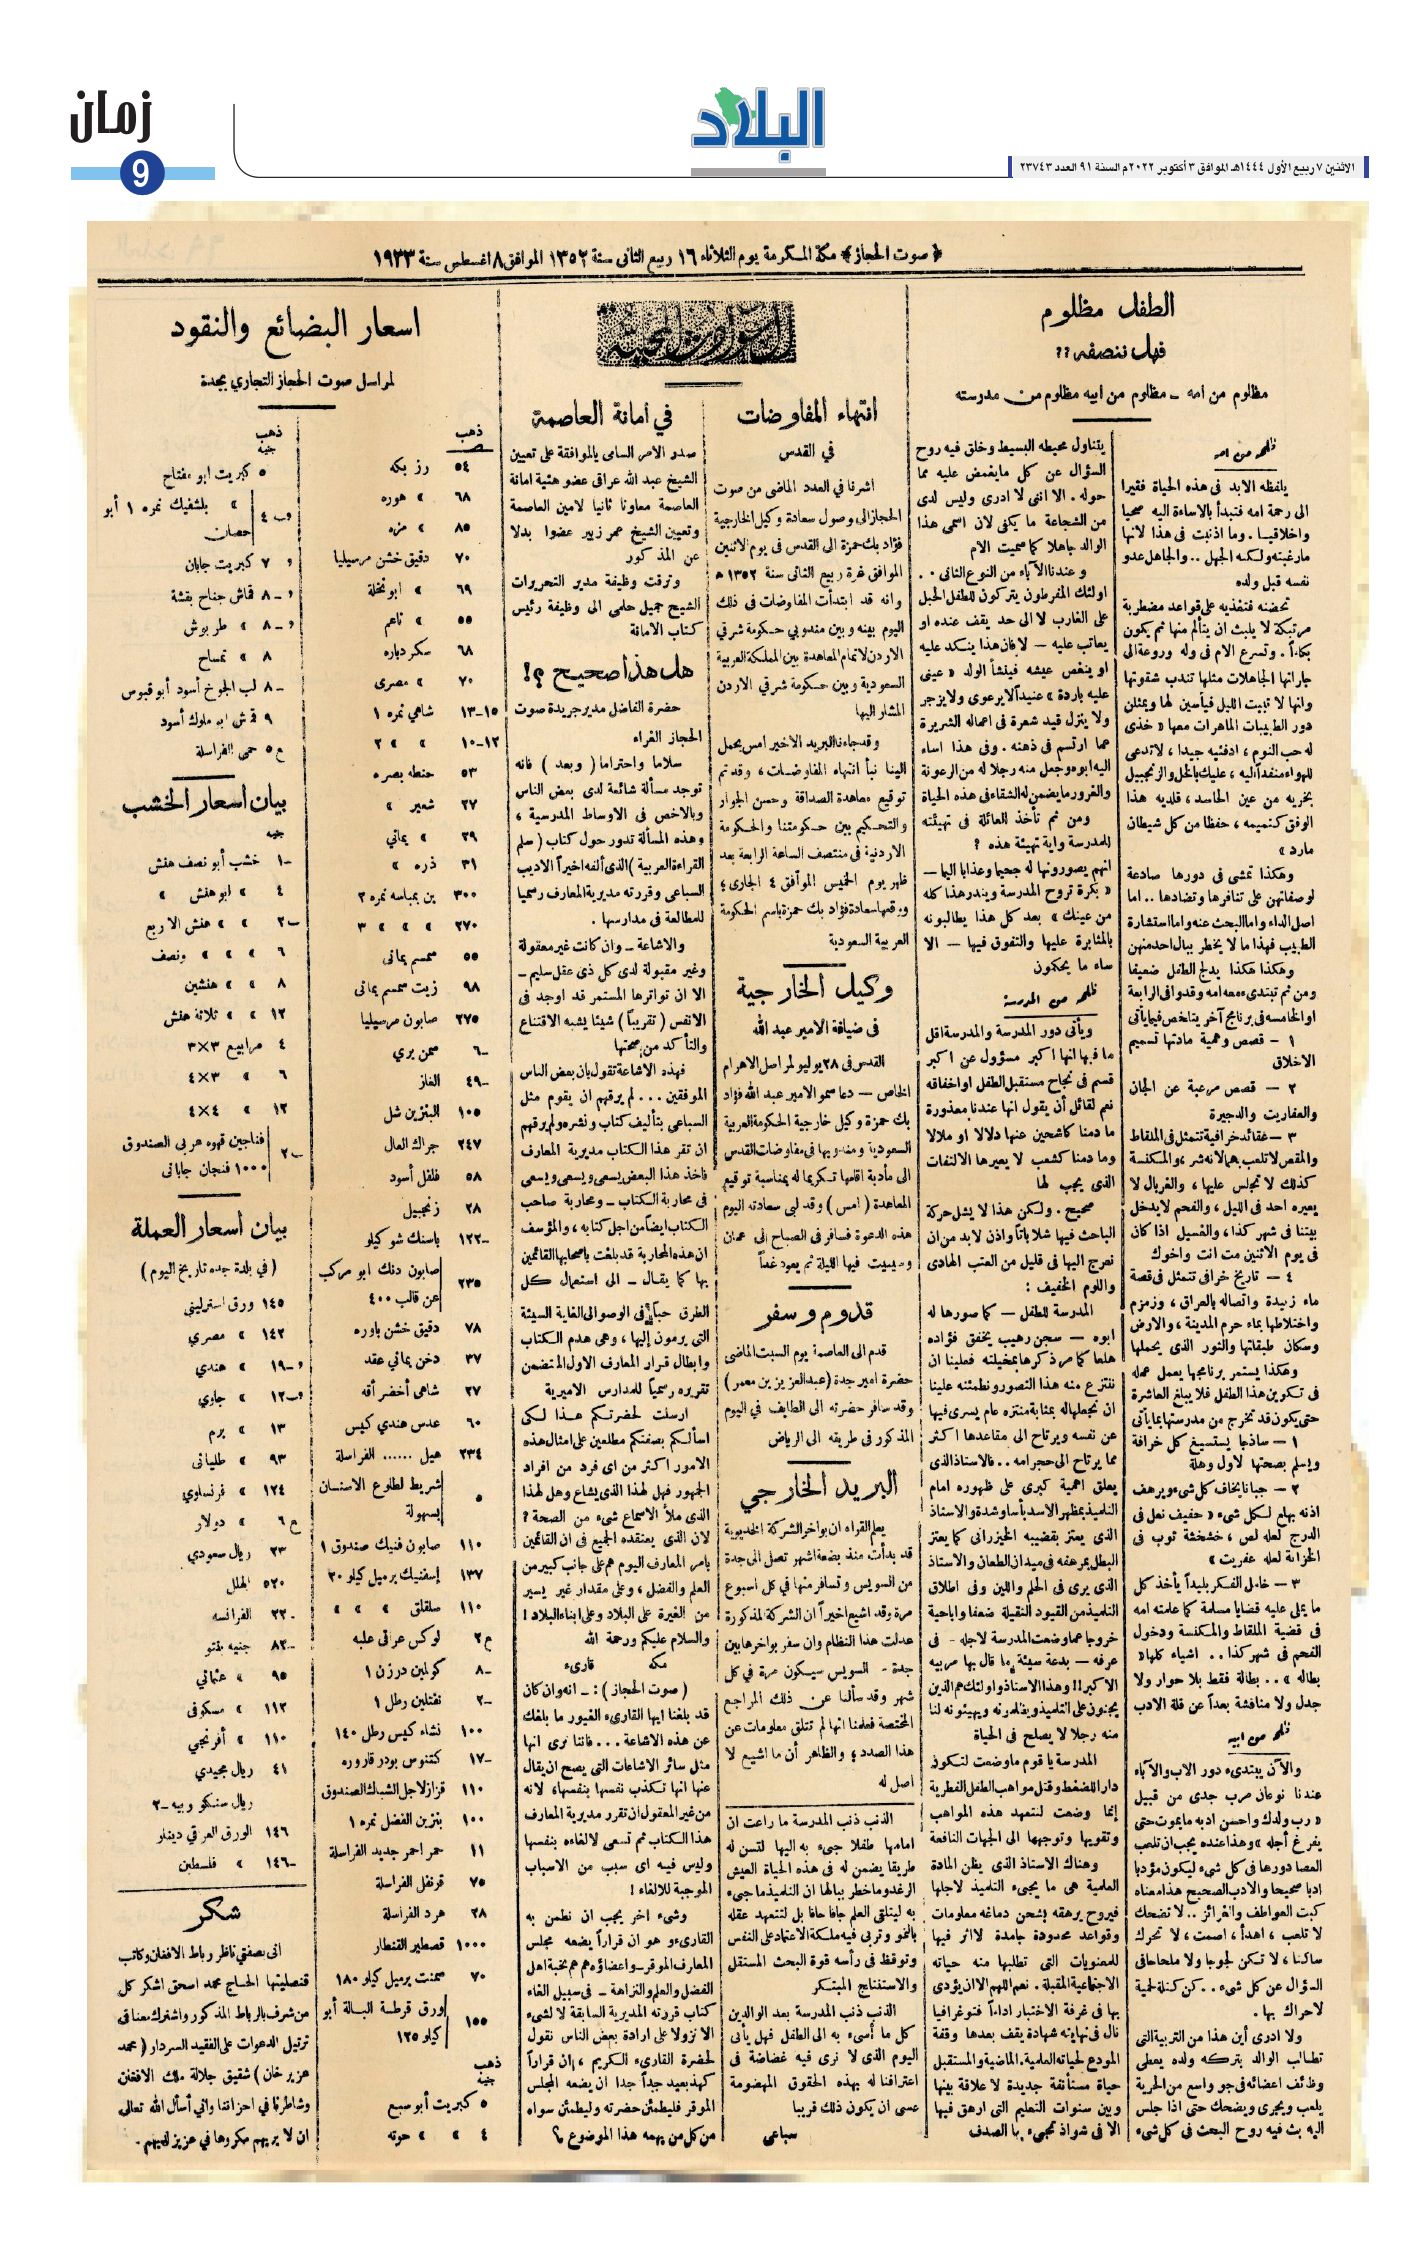 زمان
9
البلاد
الاثنين ٧ ربيع الأول ١٤٤٤هـ الموافق ٣ أكتوبر ٢٠٢٢م السنة ٩١ العدد ٢٣٧٤٣
﴿ صوت الحجاز ﴾ مكة المكرمة يوم الثلاثاء ١٦ ربيع الثانى سنة ١٣٥٢ الموافق ٨ اغسطس سنة ١٩٣٣
الطفل مظلوم
فهل ننصفه ؟؟
مظلوم من امه ـ مظلوم من ابيه مظلوم من مدرسته
ظلمه من امه
يلفظه الابد فى هذه الحياة فقيرا
الى رحمة امه فتبدأ بالاساءة اليه صحيا
واخلاقيا . وما اذنبت فى هذا لانها
مارغبته ولكنه الجهل .. والجاهل عدو
نفسه قبل ولده
تحضنه فتغذيه على قواعد مضطربة
مرتبكة لا يلبث ان يتألم منها ثم يكون
بكاءاً . وتسرع الام فى وله وروعة الى
جاراتها الجاهلات مثلها تندب شقوتها
وانها لا تبيت الليل فيأسين لها ويمثلن
دور الطبيبات الماهرات معها « خذى
له حب النوم ، ادفئيه جيدا ، لا تدعى
للهواء منفذاً اليه ، عليك بالخل والزنجبيل
بخريه من عين الحاسد ، قلديه هذا
الوفق كتميمه ، حفظا من كل شيطان
مارد »
وهكذا تمشى فى دورها صادعة
لوصفاتهن على تنافرها وتضادها .. اما
اصل الداء واما البحث عنه واما استشارة
الطبيب فهذا ما لا يخطر ببال احد منهن
وهكذا هكذا يدلج الطفل ضعيفا
ومن ثم تبتدىء معه امه وقدوافى الرابعة
او الخامسه فى برنامج آخر يتلخص فيما يأتى
١ – قصص وهمية مادتها تسميم
الاخلاق
٢ – قصص مرعبة عن الجان
والعفاريت والدجيرة
٣ – عقائد خرافية تتمثل فى الملقاط
والمقص لا تلعب بهما لانه شر ، والمكنسة
كذلك لا تجلس عليها ، والغربال لا
يعيره احد فى الليل ، والفحم لا يدخل
بيتنا فى شهر كذا ، والغسيل اذا كان
فى يوم الاثنين مت انت واخوك
٤ – تاريخ خرافى تتمثل فى قصة
ماء زبيدة واتصاله بالعراق ، وزمزم
واختلاطها بماء حرم المدينة ، والارض
وسكان طبقاتها والثور الذى يحملها
وهكذا يستمر برنامجها يعمل عمله
فى تكوين هذا الطفل فلا يبلغ العاشرة
حتى يكون قد تخرج من مدرستها بما يأتى
١ – ساذجا يستسيغ كل خرافة
ويسلم بصحتها لاول وهلة
٢ – جبانا يخاف كل شىء ويرهف
اذنه بهلع لكل شىء « حفيف نعل فى
الدرج لعله لص ، خشخشة ثوب فى
الخزانة لعله عفريت »
٣ – خامل الفكر بليداً يأخذ كل
ما يملى عليه قضايا مسلمة كما علمته امه
فى قضية الملقاط والمكنسة ودخول
الفحم فى شهر كذا . . اشياء كلها «
بطاله » .. بطالة فقط بلا حوار ولا
جدل ولا مناقشة بعداً عن قلة الادب
ظلمه من ابيه
والآن يبتدىء دور الاب والآباء
عندنا نوعان مرب جدى من قبيل
« رب ولدك واحسن ادبه ما يموت حتى
يفرغ أجله » وهذا عنده يجب ان تلعب
العصا دورها فى كل شىء ليكون مؤدبا
ادبا صحيحا والادب الصحيح هذا معناه
كبت العواطف والغرائز .. لا تضحك
لا تلعب ، اهدأ ، اصمت ، لا تتحرك
ساكنا ، لا تكن لجوجا ولا ملحاحا فى
السؤال عن كل شىء . . كن كتلة لحمية
لا حراك بها .
ولا ادرى أين هذا من التربية التى
تطالب الوالد بتركه ولده يعطى
وظائف اعضائه فى جو واسع من الحرية
يلعب ويجرى ويضحك حتى اذا جلس
اليه بث فيه روح البحث فى كل شىء
يتناول محيطه البسيط وخلق فيه روح
السؤال عن كل ما يغمض عليه مما
حوله . الا اننى لا ادرى وليس لدى
من الشجاعة ما يكفى لان اسمى هذا
الوالد جاهلا كما سميت الام
وعندنا الآباء من النوع الثانى . .
اولئك المفرطون يتركون للطفل الحبل
على الغارب لا الى حد يقف عنده او
يعاتب عليه – لا فان هذا ينكد عليه
او ينغص عيشه فينشأ الولد « عينى
عليه باردة » عنيداً لا يرعوى ولا يزجر
ولا يتزل قيد شعرة فى اعماله الشريرة
عما ارتسم فى ذهنه . وفى هذا اساء
اليه ابوه وجعل منه رجلا له من الرعونة
والغرور ما يضمن له الشقاء فى هذه الحياة
ومن ثم تأخذ العائلة فى تهيئته
للمدرسة واية تهيئة هذه ؟
انهم يصورونها له جحيما وعذابا اليما –
« بكرة تروح المدرسة ويندر هذا كله
من عينك » بعد كل هذا يطالبونه
بالمثابرة عليها والتفوق فيها – الا
ساء ما يحكمون
ظلمه من المدرسة
ويأتى دور المدرسة والمدرسة اقل
ما فيها انها اكبر مسؤول عن اكبر
قسم فى نجاح مستقبل الطفل او اخفاقه
نعم لقائل أن يقول انها عندنا معذورة
ما دمنا كاشحين عنها دلالا او ملالا
وما دمنا كشعب لا يعيرها الالتفات
الذى يجب لها
صحيح . ولكن هذا لا يشل حركة
الباحث فيها شلا باتاً واذن لا بد من ان
نعرج اليها فى قليل من العتب الهادى
واللوم الخفيف :
المدرسة للطفل – كما صورها له
ابوه – سجن رهيب يخفق فؤاده
هلعا كما مر ذكرها بمخيلته فعلينا ان
ننتزع منه هذا التصور ونطمئنه علينا
ان نجعلها له بمثابة منتزه عام يسرى فيها
عن نفسه ويرتاح الى مقاعدها اكثر
مما يرتاح الى حجر امه .. فالاستاذ الذى
يعلق اهمية كبرى على ظهوره امام
التلميذ بمظهر الاسد بأسا وشدة والاستاذ
الذى يعتز بقضيبه الخيزرانى كما يعتز
البطل بمرهفه فى ميدان الطعان والاستاذ
الذى يرى فى الحلم واللين وفى اطلاق
التلميذ من القيود الثقيلة ضعفا واباحية
خروجا عما وضعت المدرسة لاجله - فى
عرفه – بدعة سيئة ما قال بها مربيه
الاكبر !! وهذا الاستاذ واولئك هم الذين
يجنون على التلميذ ويظلمونه ويهيئونه لنا
منه رجلا لا يصلح فى الحياة
المدرسة يا قوم ما وضعت لتكون
دار للضغط وقتل مواهب الطفل الفطرية
إنما وضعت لتتعهد هذه المواهب
وتقويها وتوجهها الى الجهات النافعة
وهناك الاستاذ الذى يظن المادة
العلمية هى ما يجىء التلميذ لاجلها
فيروح يرهقه بشحن دماغه معلومات
وقواعد محدودة جامدة لا اثر فيها
للمعنويات التى تطلبها منه حياته
الاجتماعية المقبلة . نعم اللهم الا ان يؤدى
بها فى غرفة الاختبار اداءاً فتوغرافيا
نال فى نهايته شهادة يقف بعدها وقفة
المودع لحياته العلمية . الماضية والمستقبل
حياة مستأنفة جديدة لا علاقة بينها
وبين سنوات التعليم التى ارهق فيها
الا فى شواذ تجىء بها الصدف
الحوادث المحلية
انتهاء المفاوضات
في القدس
اشرنا في العدد الماضى من صوت
الحجاز الى وصول سعادة وكيل الخارجية
فؤاد بك حمزة الى القدس في يوم الاثنين
الموافق غرة ربيع الثانى سنة ١٣٥٢ هـ
وانه قد ابتدأت المفاوضات في ذلك
اليوم بينه وبين مندوبي حكومة شرقي
الاردن لاتمام المعاهدة بين المملكة العربية
السعودية وبين حكومة شرقي الاردن
المشار اليها
وقد جاءنا البريد الاخير امس يحمل
الينا نبأ انتهاء المفاوضات ، وقد تم
توقيع معاهدة الصداقة وحسن الجوار
والتحكيم بين حكومتنا والحكومة
الاردنية فى منتصف الساعة الرابعة بعد
ظهر يوم الخميس الموافق ٤ الجارى ؛
وقعها سعادة فؤاد بك حمزة باسم الحكومة
العربية السعودية
وكيل الخارجية
فى ضيافة الامير عبد الله
القدس فى ٢٨ يوليو لمراسل الاهرام
الخاص – دعا سمو الامير عبد الله فؤاد
بك حمزة وكيل خارجية الحكومة العربية
السعودية ومندوبها فى مفاوضات القدس
الى مأدبة اقامها تكريما له بمناسبة توقيع
المعاهدة ( امس ) وقد لبى سعادته اليوم
هذه الدعوة فسافر فى الصباح الى عمان
وسيبيت فيها الليلة ثم يعود غداً
قدوم وسفر
قدم الى العاصمة يوم السبت الماضى
حضرة امير جدة ( عبد العزيز بن معمر )
وقد سافر حضرته الى الطايف في اليوم
المذكور فى طريقه الى الرياض
البريد الخارجي
يعلم القراء ان بواخر الشركة الخديوية
قد بدأت منذ بضعة اشهر تصل الى جدة
من السويس وتسافر منها في كل اسبوع
مرة وقد اشيع اخيراً ان الشركة المذكورة
عدلت هذا النظام وان سفر بواخرها بين
جدة - السويس سيكون مرة في كل
شهر وقد سألنا عن ذلك المراجع
المختصة فعلمنا انها لم تتلق معلومات عن
هذا الصدد ؛ والظاهر أن ما اشيع لا
اصل له
الذنب ذنب المدرسة ما راعت ان
امامها طفلا جىء به اليها لتسن له
طريقا يضمن له في هذه الحياة العيش
الرغد وما خطر ببالها ان التلميذ ما جىء
به ليتلقى العلم جافا حافا بل لتتعهد عقله
بالنمو وتربى فيه ملكة الاعتماد على النفس
وتوقظ فى رأسه قوة البحث المستقل
والاستنتاج المبتكر
الذنب ذنب المدرسة بعد الوالدين
كل ما أسىء به الى الطفل فهل يأتى
اليوم الذى لا نرى فيه غضاضة فى
اعترافنا له بهذه الحقوق المهضومة
عسى ان يكون ذلك قريبا
سباعى
في أمانة العاصمة
صدر الامر السامى بالموافقة على تعيين
الشيخ عبد الله عراقى عضو هئية امانة
العاصمة معاونا ثانيا لامين العاصمة
وتعيين الشيخ عمر زبير عضوا بدلا
عن المذكور
وترقت وظيفة مدير التحريرات
الشيخ جميل حلمى الى وظيفة رئيس
كتاب الامانة
هل هذا صحيح ؟!
حضرة الفاضل مدير جريدة صوت
الحجاز الغراء
سلاما واحتراما ( وبعد ) فانه
توجد مسألة شائعة لدى بعض الناس
وبالاخص فى الاوساط المدرسية ،
وهذه المسألة تدور حول كتاب ( سلم
القراءة العربية ) الذى ألفه اخيراً الاديب
السباعى وقررته مديرية المعارف رسميا
للمطالعة فى مدارسها .
والاشاعة ـ وان كانت غير معقولة
وغير مقبولة لدى كل ذى عقل سليم ـ
الا ان تواترها المستمر قد اوجد فى
الانفس ( تقريباً ) شيئا يشبه الاقتناع
والتأكد من صحتها
فهذه الاشاعة تقول بان بعض الناس
الموقفين . . . لم يرقهم ان يقوم مثل
السباعى بتأليف كتاب ونشره ولم يرقهم
ان تقر هذا الكتاب مديرية المعارف
فاخذ هذا البعض يسعى ويسعى ويسعى
فى محاربة الكتاب ـ ومحاربة صاحب
الكتاب ايضاً من اجل كتابه ، والمؤسف
ان هذه المحاربة قد بلغت باصحابها القائمين
بها كما يقال ـ الى استعمال كل
الطرق حباً فى الوصو الى الغاية السيئة
التى يرمون إليها ، وهى هدم الكتاب
وابطال قرار المعارف الاول المتضمن
تقريره رسمياً للمدارس الاميرية
ارسلت لحضرتكم هذا لكى
اسألكم بصفتكم مطلعين على امثال هذه
الامور اكثر من اى فرد من افراد
الجمهور فهل لهذا الذى يشاع وهل لهذا
الذى ملأ الاسماع شىء من الصحة ؟
لان الذى يعتقده الجميع فى ان القائمين
بامر المعارف اليوم هم على جانب كبير من
العلم والفضل ، وعلى مقدار غير يسير
من الغيرة على البلاد وعلى ابناء البلاد !
والسلام عليكم ورحمة الله
مكه قارىء
( صوت الحجاز ) : ـ انه وان كان
قد بلغنا ايها القارىء الغيور ما بلغك
عن هذه الاشاعة . . . فاننا نرى انها
مثل سائر الاشاعات التى يصح ان يقال
عنها انها تكذب نفسها بنفسها ، لانه
من غير المعقول ان تقرر مديرية المعارف
هذا الكتاب ثم تسعى لالغاءه بنفسها
وليس فيه اى سبب من الاسباب
الموجبة للالغاء !
وشىء اخر يجب ان نطمن به
القارىء و هو ان قراراً يضعه مجلس
المعارف الموقر ـ واعضاؤه هم هم نخبة اهل
الفضل والعلم والنزاهة ـ فى سبيل الغاء
كتاب قررته المديرية السابقة لا لشىء
الا نزولا على ارادة بعض الناس نقول
لحضرة القارىء الكريم ، إن قراراً
كهذا بعيد جداً جدا ان يضعه المجلس
الموقر فليطمئن حضرته وليطمئن سواه
من كل من يهمه هذا الموضوع ؟
اسعار البضائع والنقود
لمراسل صوت الحجاز التجاري بجدة
ذهب
٥٤ رز بكه
٦٨ » هوره
٨٥ » مزه
٧٠ دقيق خشن مرسيليا
٦٩ » ابو نخلة
٥٥ » ناعم
٦٨ سكر دباره
٧٠ » مصرى
١٥–١٣ شاهي نمره ١
١٢–١٠ » » ٢
٥٣ حنطه بصره
٢٧ شعير »
٢٩ » يماني
٣١ ذره »
٣٠٠ بن بمباسه نمره ٢
٢٧٠ » » » ٣
٥٥ سمسم يمانى
٩٨ زيت سمسم يمانى
٢٧٥ صابون مرسيليا
٦- سمن بري
٤٩- الغاز
١٠٥ البنزين شل
٢٤٧ جراك العال
٥٨ فلفل أسود
٢٨ زنجبيل
١٢٢- باسنك شو كيلو
٢٣٥ صابون دنك ابو مركب
عن قالب ٤٠٠
٧٨ دقيق خشن باوره
٣٧ دخن يماني عقد
٢٧ شاهى أخضر أقه
٦٠ عدس هندي كيس
٢٣٤ هيل ...... الفراسلة
٥ شريط لطلوع الاسنان
بسهولة
١١٠ صابون فنيك صندوق ١
١٣٧ إسفنيك برميل كيلو ٢٠
١١٠ صلقلق » » »
٢م لوكس عراقى علبه
٨- كولمين درزن ١
٢- نفتلين رطل ١
١٠٠ نشاء كيس رطل ١٤٠
١٧- كتنوس بودر قاروره
١١٠ قزاز لاجل الشبك الصندوق
١٠٠ بنزين الفضل نمره ١
١١ حمر احمر جديد الفراسلة
٧٥ قرنفل الفراسلة
٢٨ هرد الفراسلة
١٠٠٠ قصطير القنطار
٧٠ سمنت برميل كيلو ١٨٠
١٥٥ ورق قرطسة البالة أبو
كيلو ١٢٥
ذهب
جنيه
٥ كبريت أبو سبع
٤ » » حوته
ذهب
جنيه
٥ كبريت ابو مفتاح
» بلشفيك نمره ١ أبو
حصان
٧ كبريت جابان
٨- قماش جناح بفشة
٨- » طربوش
٨ » تمساح
٨- لب الجوخ أسود أبو قبوس
٩ قمش ابو ملوك أسود
٥ حمى الفراسلة
بيان اسعار الخشب
جنيه
١- خشب أبو نصف هنش
٤ » ابو هنش »
» » هنش الا ربع
٦ » » » ونصف
٨ » » هنشين
١٢ » » ثلاثة هنش
٤ مرابيع ٣×٣
٦ » ٣×٤
١٢ » ٤×٤
فناجين قهوه عربى الصندوق
١٠٠٠ فنجان جابانى
بيان أسعار العملة
( في بلدة جده تاريخ اليوم )
١٤٥ ورق استرليني
١٤٢ » مصري
١٩- » هندي
» جاوي
١٣ » برم
٩٣ » طليانى
١٢٤ » فرنساوي
٦ » دولار
٢٣ ريال سعودي
٥٢٠ الهلل
٢٢- الفرانسه
٨٢- جنيه بنتو
٩٥ » عثماني
١١٢ » مسكوفى
١١٠ » أفرنجي
٤١ ريال مجيدي
ريال سنكو وبيه -٢
١٤٦ الورق العراقي دينار
١٤٦- » فلسطين
شكر
انى بصفتي ناظر رباط الافغان وكاتب
قنصليتها الحاج محمد اسحق اشكر كل
من شرف بالرباط المذكور واشترك معنا فى
ترتيل الدعوات على الفقيد السردار ( محمد
عزيز خان ) شقيق جلالة ملك الافغان
وشاطرنا في احزاننا واني أسأل الله تعالى
ان لا يريهم مكروها في عزيز لديهم .